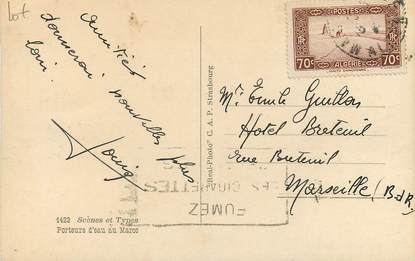 lot
Amitiés
donnerai nouvelles plus
loin.
Louis
1422 Scènes et Types
Porteurs d'eau au Maroc
"Real-Photo" C. A. P. Strasbourg
POSTES
RF
ALGÉRIE
70c 70c
Mr Emile Guillot
Hotel Breteuil
rue Breteuil
Marseille (B.d.R.)
FUMEZ
CIGARETTES